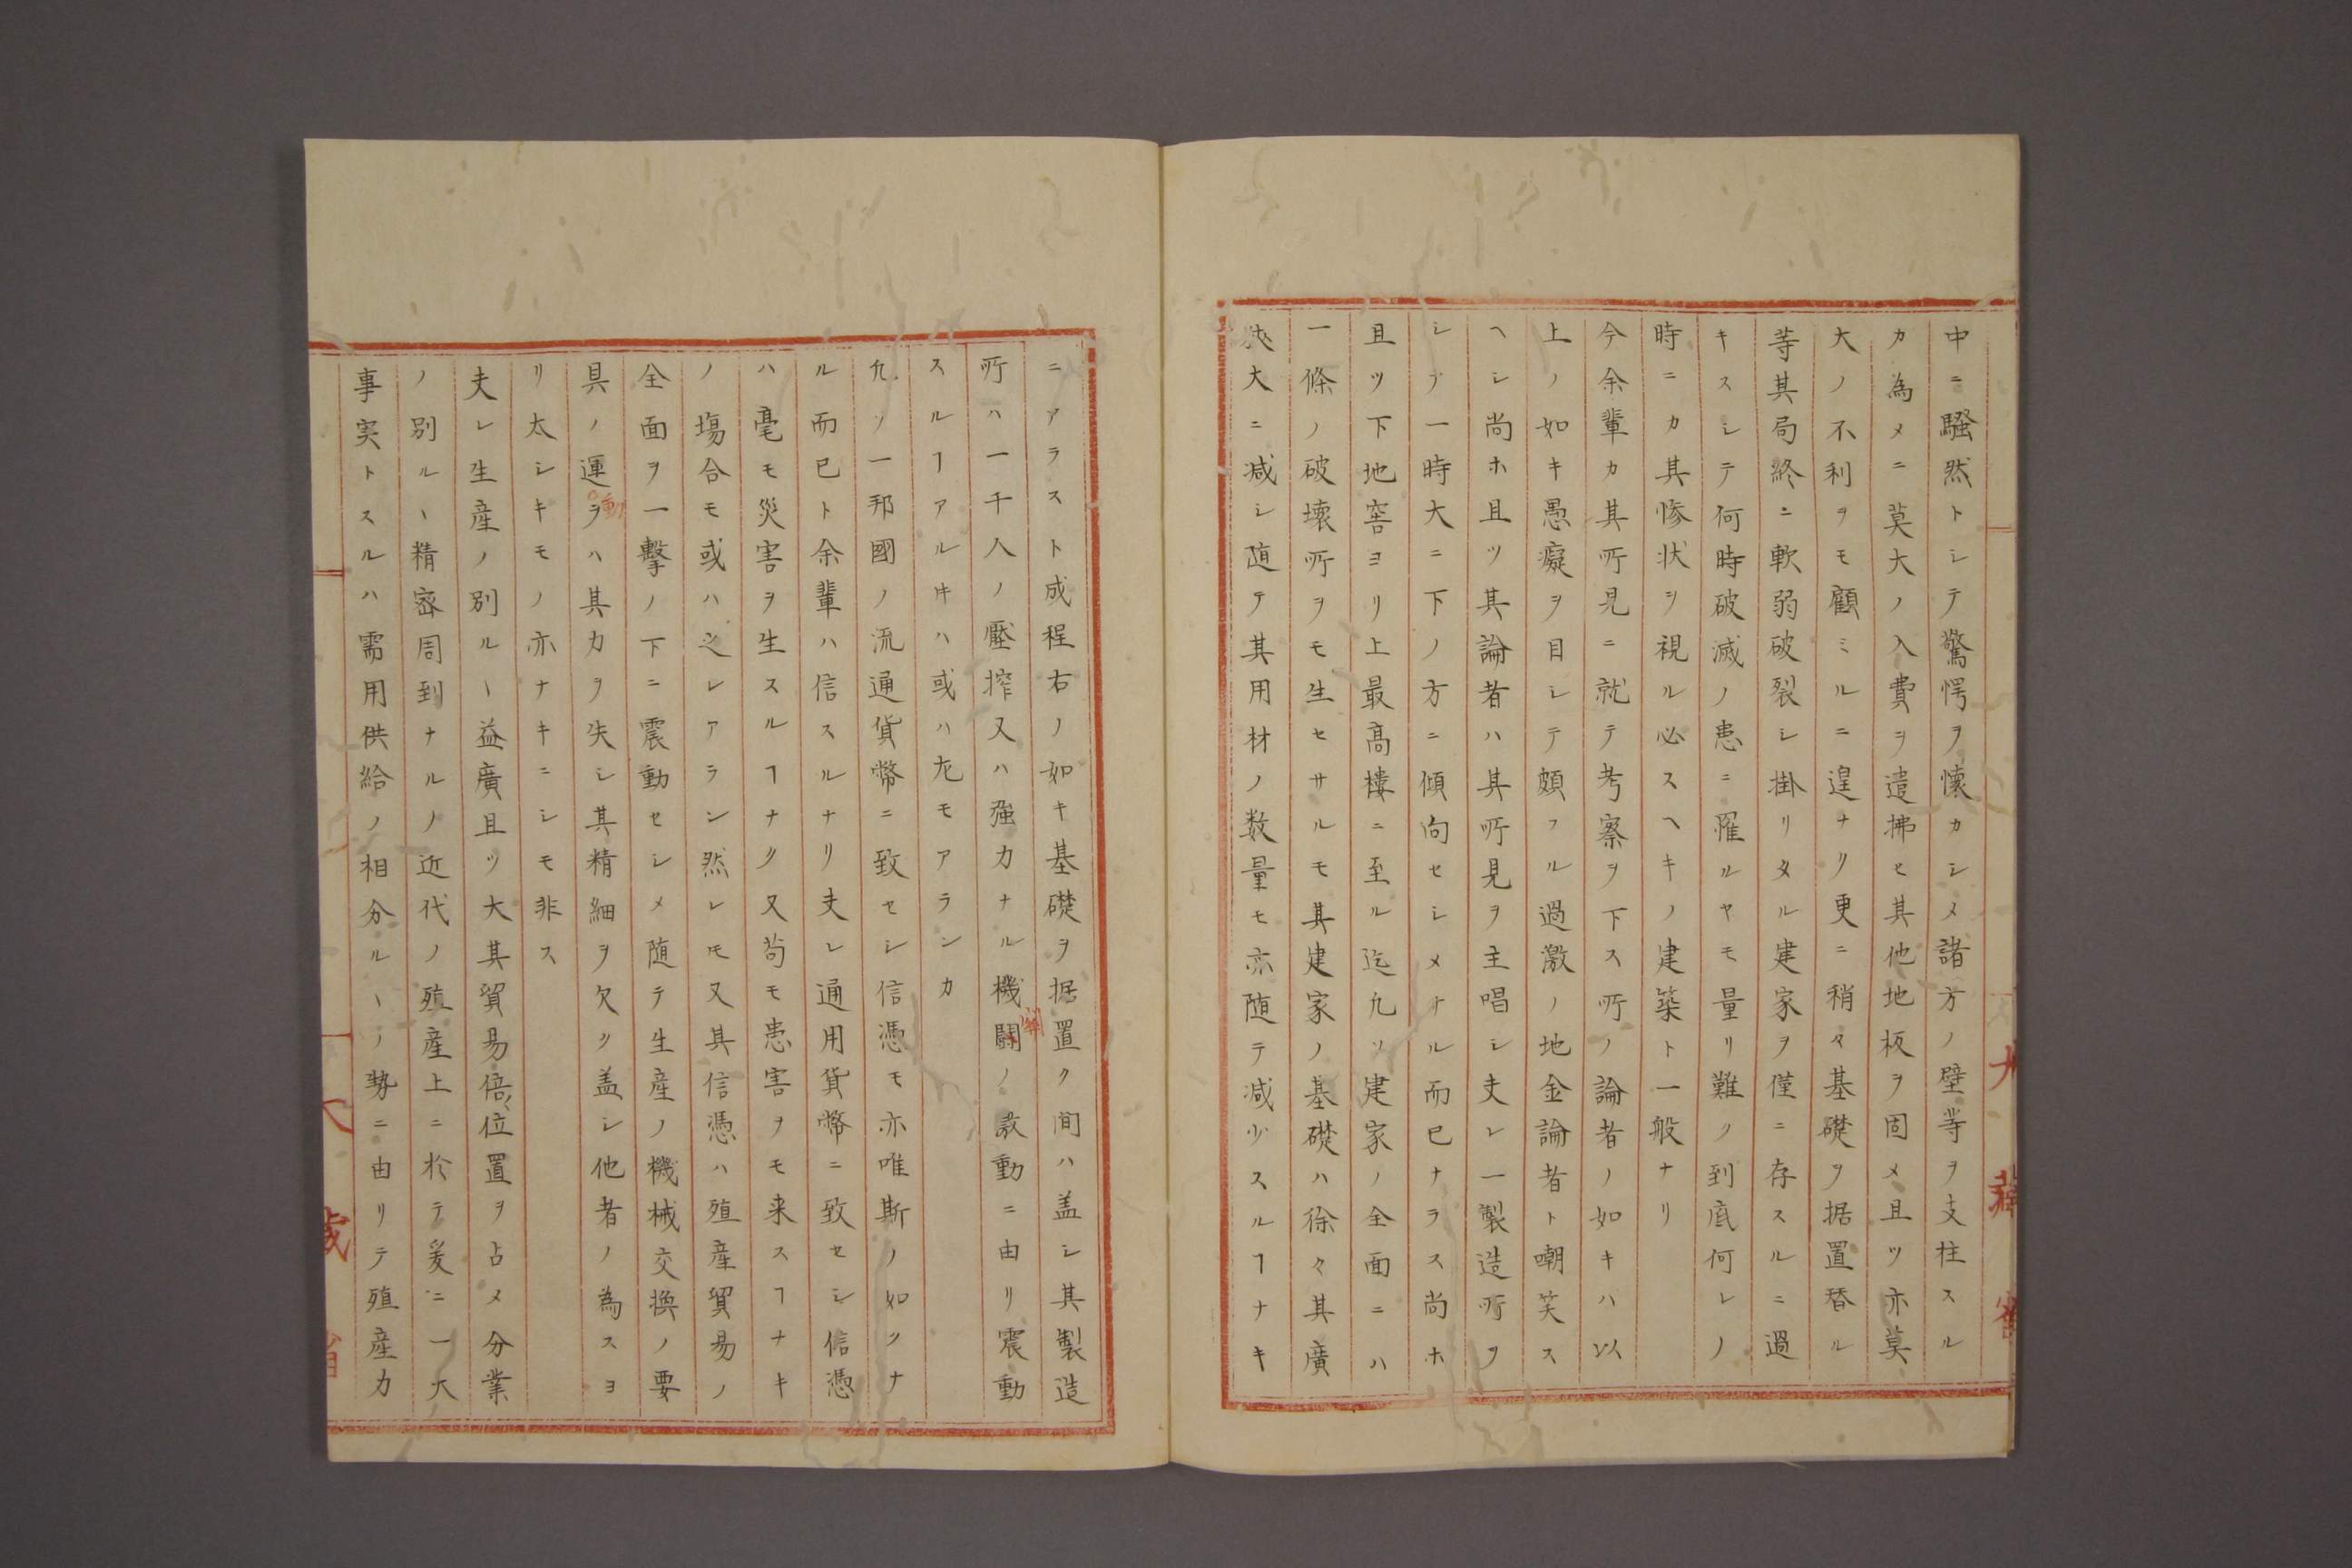 中ニ騒然トシテ驚愕ヲ懐カシメ諸方ノ壁等ヲ支柱スル
カ為メニ莫大ノ入費ヲ遣拂セ其他地板ヲ固メ且ツ亦莫
大ノ不利ヲモ顧ミルニ遑ナリ更ニ稍々基礎ヲ据置替ル
等其局終ニ軟弱破裂シ掛リタル建家ヲ僅ニ存スルニ過
キスシテ何時破滅ノ患ニ罹ルヤモ量リ難ク到底何レノ
時ニカ其惨状ヲ視ル必スヘキノ建築ト一般ナリ
今余輩カ其所見ニ就テ考察ヲ下ス所ノ論者ノ如キハ以
上ノ如キ愚癡ヲ目シテ頗フル過激ノ地金論者ト嘲笑ス
ヘシ尚ホ且ツ其論者ハ其所見ヲ主唱シ夫レ一製造所ヲ
シテ一時大ニ下ノ方ニ傾向セシメタル而已ナラス尚ホ
且ツ下地窖ヨリ上最高樓ニ至ル迄凡ソ建家ノ全面ニハ
一條ノ破壊所ヲモ生セサルモ其建家ノ基礎ハ徐々其廣
狹大ニ減シ随テ其用材ノ数量モ亦随テ減少スルヿナキ
ニアラスト成程右ノ如キ基礎ヲ据置ク間ハ蓋シ其製造
所ハ一千人ノ壓搾又ハ强力ナル機關ノ激動ニ由リ震動
スルヿアル牛ハ或ハ尤モアランカ
凡ソ一邦國ノ流通貨幣ニ致セシ信憑モ亦唯斯ノ如クナ
ル而已ト余輩ハ信スルナリ夫レ通用貨幣ニ致セシ信憑
ハ毫モ災害ヲ生スルヿナク又苟モ患害ヲモ来スヿナキ
ノ塲合モ或ハ之レアラン然レ𪜈又其信憑ハ殖産貿易ノ
全面ヲ一撃ノ下ニ震動セシメ随テ生産ノ機械交換ノ要
具ノ運動ヲハ其力ヲ失シ其精細ヲ欠ク蓋シ他者ノ為スヨ
リ太シキモノ亦ナキニシモ非ス
夫レ生産ノ別ルヽ益廣且ツ大其貿易倍〻位置ヲ占メ分業
ノ別ルヽ精密周到ナルノ近代ノ殖産上ニ於テ爰ニ一大
事実トスルハ需用供給ノ相分ルヽノ勢ニ由リテ殖産力
大藏省